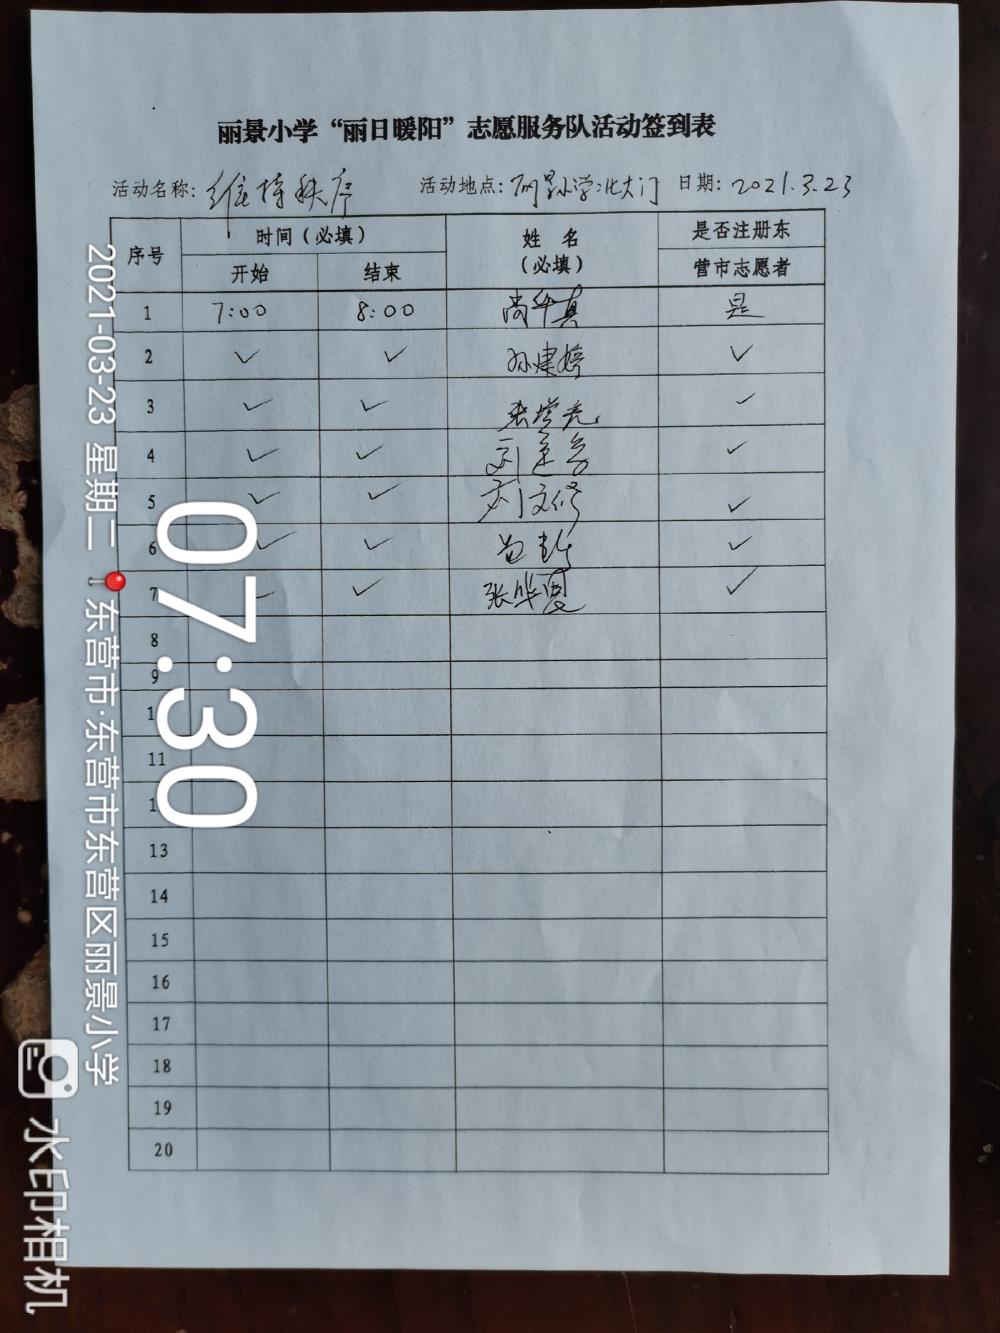 丽景小学“丽日暖阳”志愿服务队活动签到表
活动名称：维持秩序 活动地点：丽景小学北大门 日期：2021.3.23
序号 时间（必填） 姓 名（必填） 是否注册东营市志愿者
开始 结束
1 7:00 8:00 尚华真 是
2 ✓ ✓ 孙建婷 ✓
3 ✓ ✓ 张学亮 ✓
4 ✓ ✓ 刘 ✓
5 ✓ ✓ 刘文俊 ✓
6 ✓ ✓ ✓
7 ✓ 张华 ✓
8
9
1
11
1
13
14
15
16
17
18
19
20
07:30
2021-03-23 星期二 东营市·东营市东营区丽景小学
水印相机